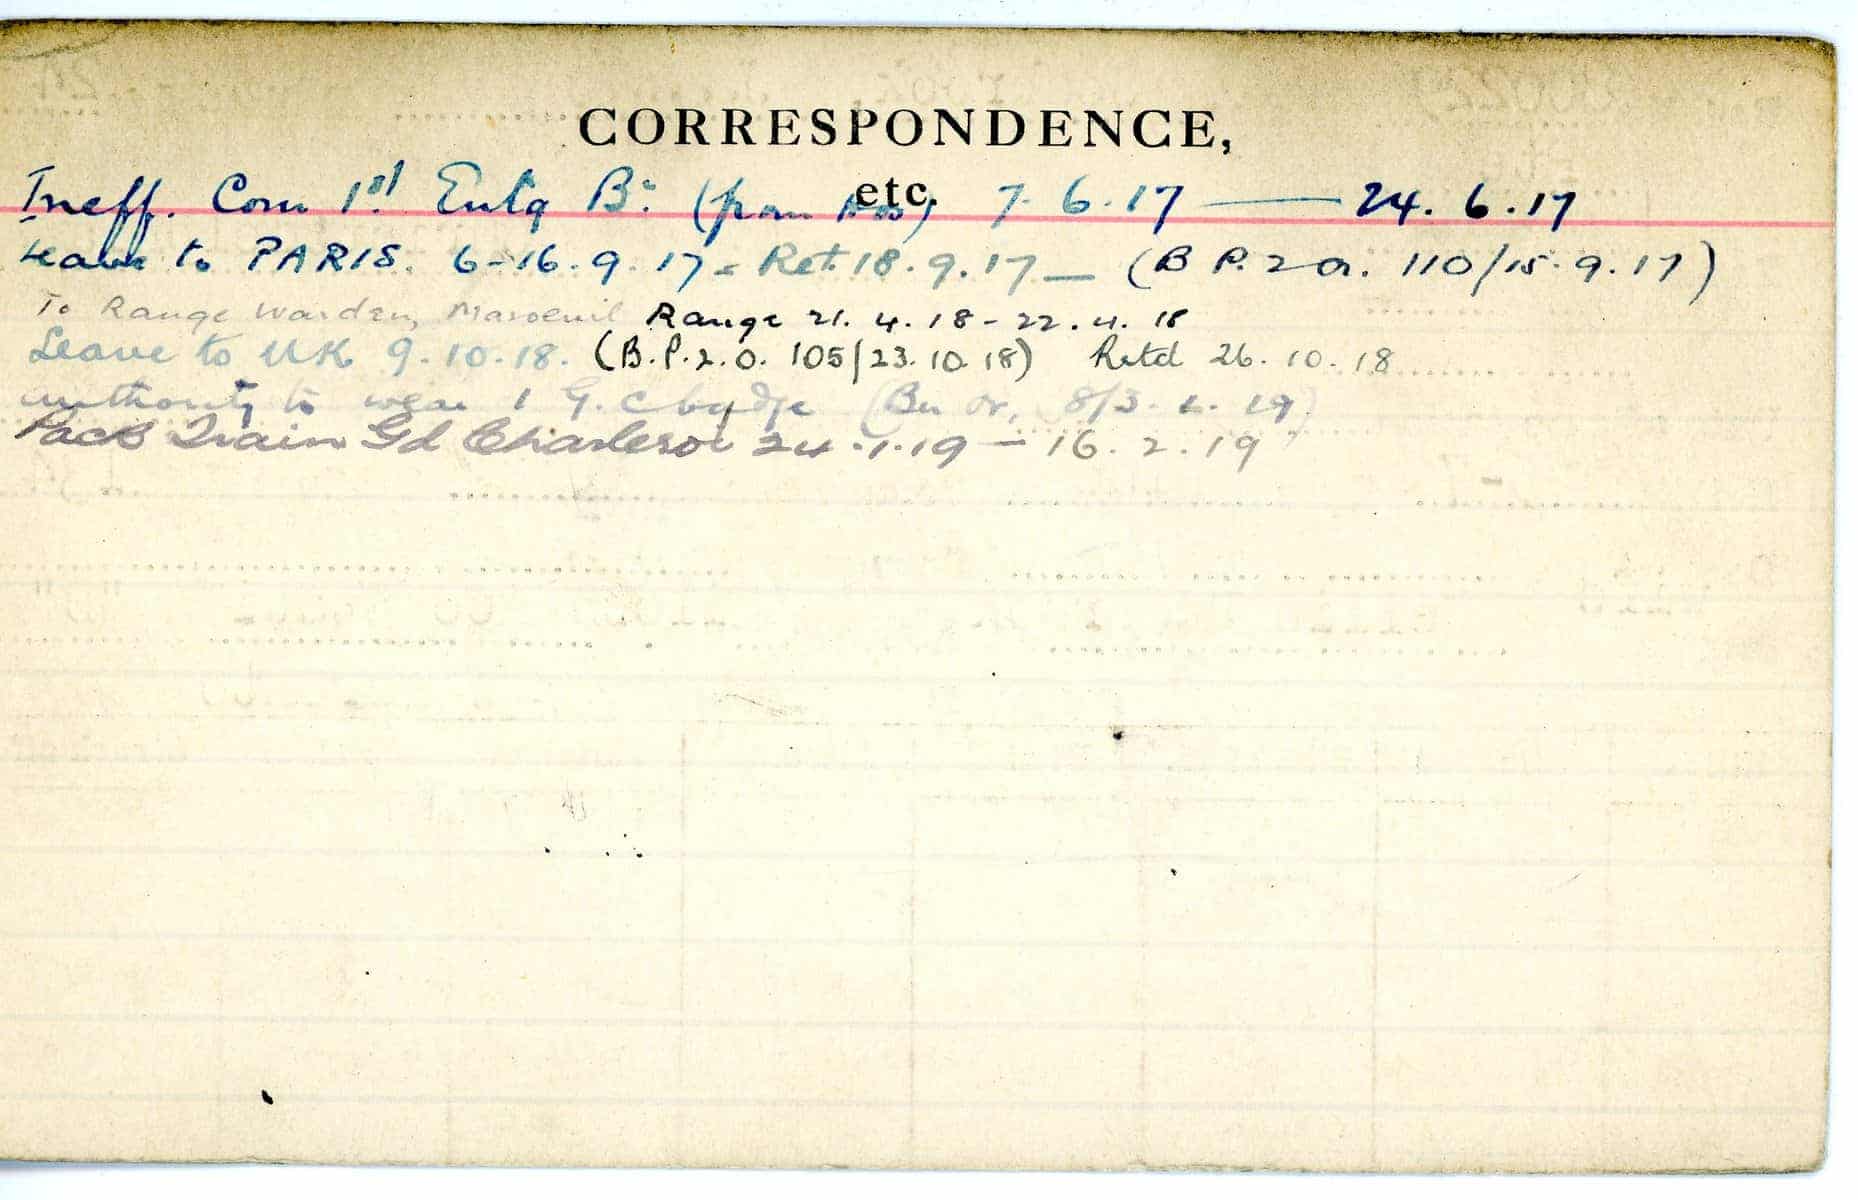 CORRESPONDENCE,
etc.
Ineff. Com 1st Entg Bn. (from Hos) 7.6.17 — 24.6.17
Leave to PARIS. 6-16.9.17 - Ret. 18.9.17 — (B P. 2 Or. 110/15.9.17)
To Range Warden, Maroeuil Range 21.4.18 - 22.4.18
Leave to UK 9.10.18. (B.P.2.O. 105/23.10.18) Retd 26.10.18
Authority to wear 1 G.C badge (Bn Or, 8/3.2.19)
Pack Train Gd Charleroi 24.1.19 - 16.2.19